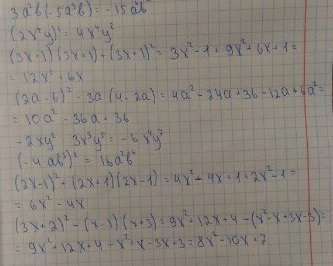 3a²b(-5a³b) = -15a⁵b²
(2x²y)² = 4x⁴y²
(3x-1)(3x+1)+(3x+1)² = 3x²-1+9x²+6x+1=
= 12x²+6x
(2a-6)² - 3a(4-2a) = 4a²-24a+36-12a+6a²=
= 10a²-36a+36
-2xy² 3x³y² = -6x⁴y⁴
(-4ab³)² = 16a²b⁶
(2x-1)²+(2x+1)(2x-1) = 4x²-4x+1+2x²-1=
= 6x²-4x
(3x+2)²-(x-1)(x+3) = 9x²+12x+4-(x²-x+3x-3)=
= 9x²+12x+4-x²+x-3x+3 = 8x²-10x+7